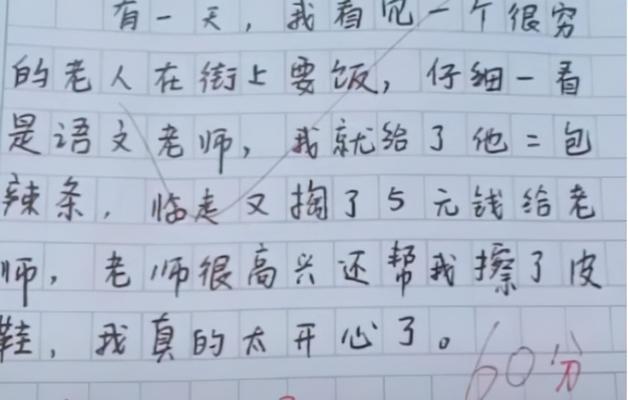 有一天，我看见一个很穷
的老人在街上要饭，仔细一看
是语文老师，我就给了他二包
辣条，临走又掏了5元钱给老
师，老师很高兴还帮我擦了皮
鞋，我真的太开心了。
60分